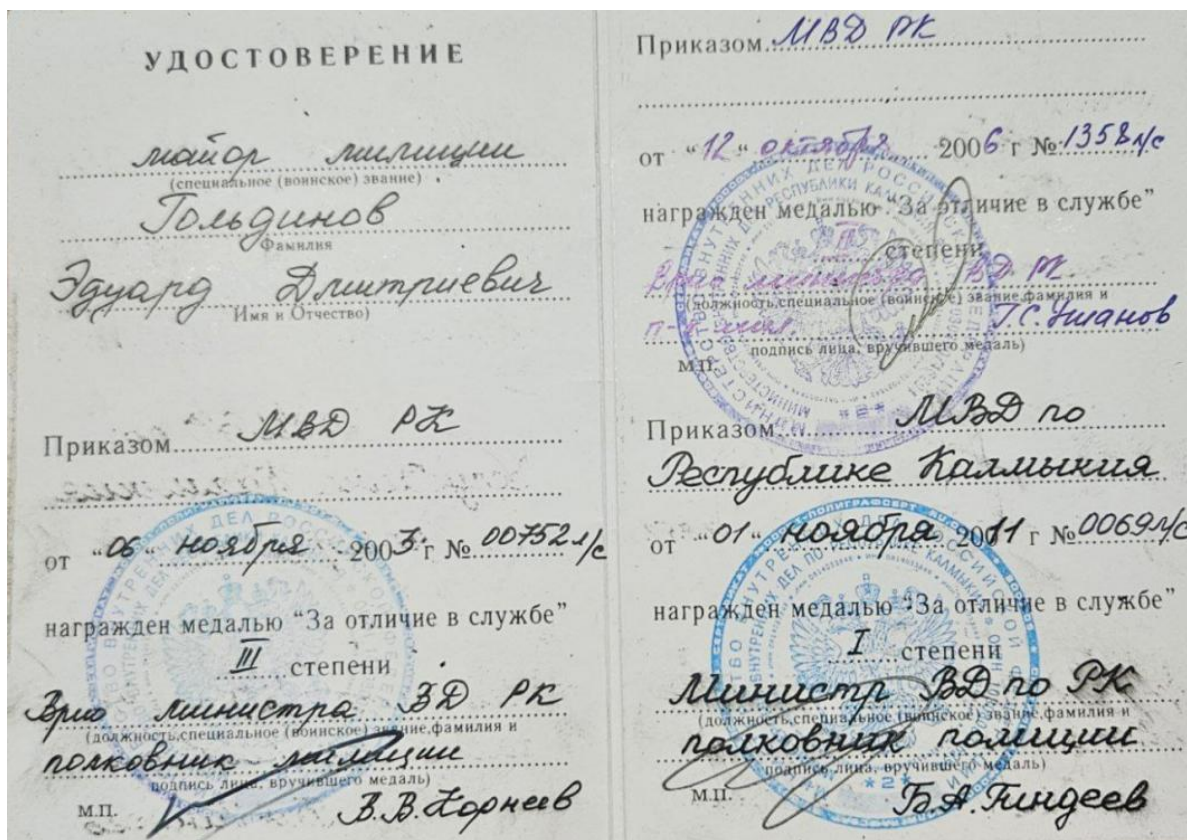 УДОСТОВЕРЕНИЕ
майор милиции
(специальное (воинское) звание)
Гольдинов
Фамилия
Эдуард Дмитриевич
Имя и Отчество)
Приказом МВД РК
от "06" ноября 2003 г № 00752 л/с
награжден медалью "За отличие в службе"
III степени
Врио министра ВД РК
(должность,специальное (воинское) звание,фамилия и
полковник милиции
подпись лица, вручившего медаль)
М.П. В.В.Корнеев
Приказом МВД РК
от "12" октября 2006 г № 1358 л/с
награжден медалью "За отличие в службе"
II степени
Врио министра ВД РК
(должность,специальное (воинское) звание,фамилия и
п-к мил. Г.С.Уланов
подпись лица, вручившего медаль)
М.П.
Приказом МВД по
Республике Калмыкия
от "01" ноября 2011 г № 0069 л/с
награжден медалью "За отличие в службе"
I степени
Министр ВД по РК
(должность,специальное (воинское) звание,фамилия и
полковник полиции
подпись лица, вручившего медаль)
М.П. Б.А.Гиндеев